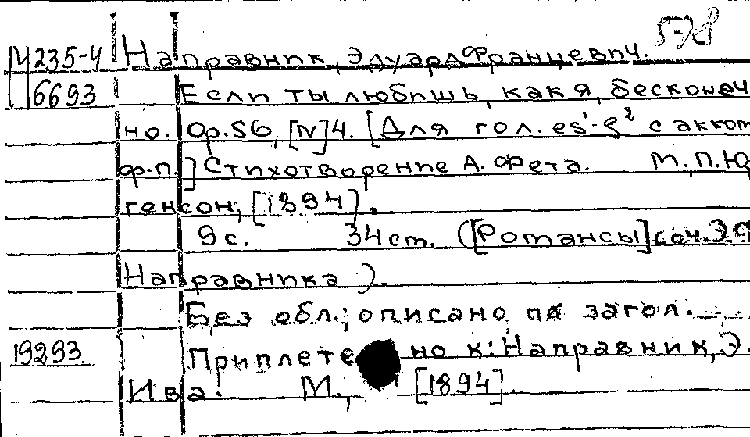 5-78
М 235-4 Направник, Эдуард Францевич.
6693 Если ты любишь, как я, бесконеч
но. Op.56, [N]4. [Для гол. es'-g² с акком
ф-п.] Стихотворение А. Фета. М., П. Юр
генсон, [1894].
9 с. 34 cm. ([Романсы] соч. Э Ф
Направника).
Без обл.; описано по загол.
19293 Приплетено к: Направник, Э.
Ива! М., [1894].